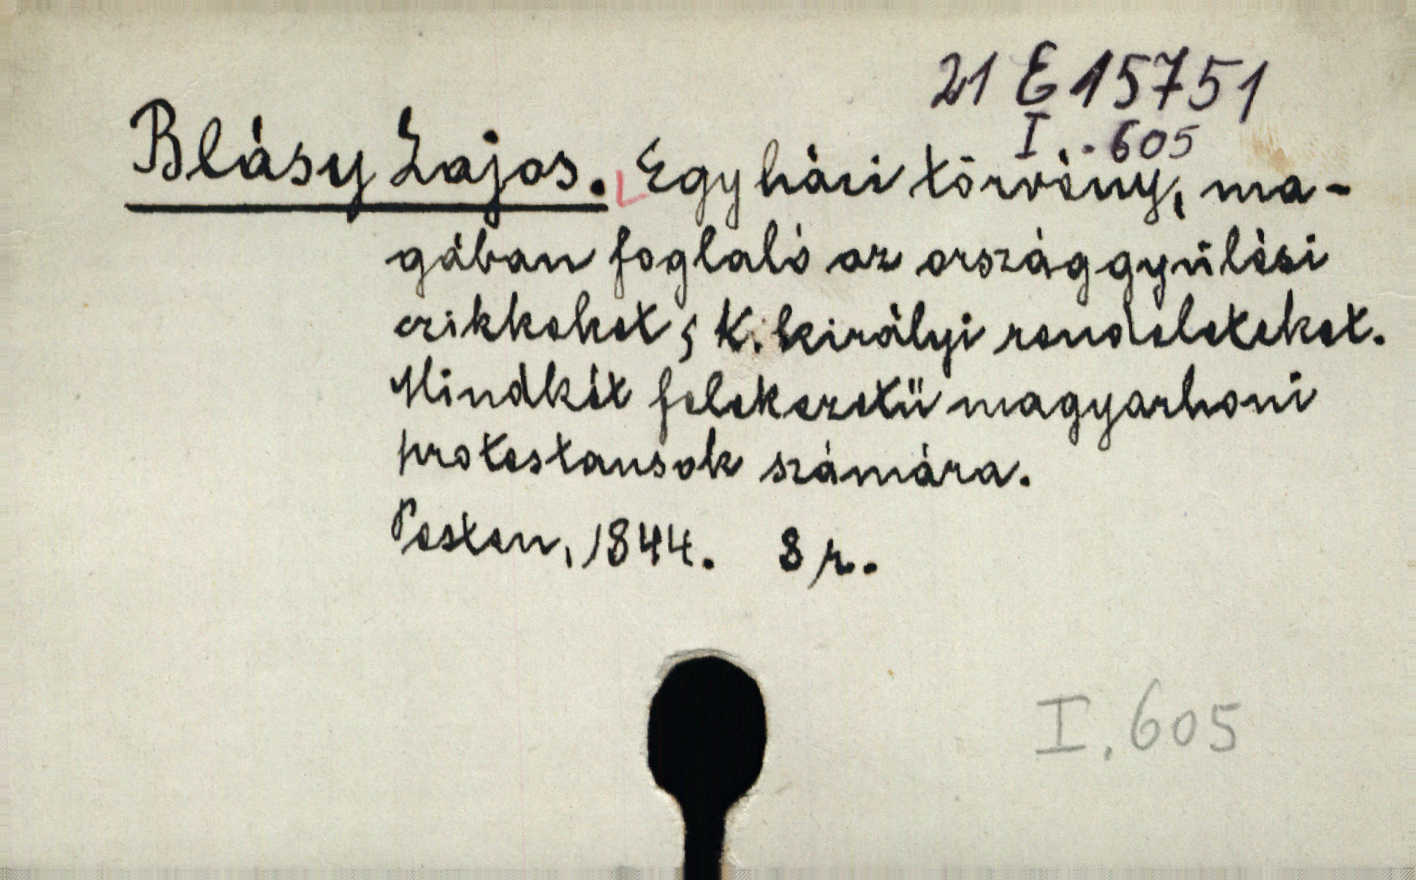 21 E 15751
I. 605
Blásy Lajos. Egyházi törvény, ma-
gában foglaló az országgyűlési
czikkeket, s K. királyi rendeleteket.
Mindkét felekezetü magyarhoni
protestansok számára.
Pesten, 1844. 8 r.
I. 605